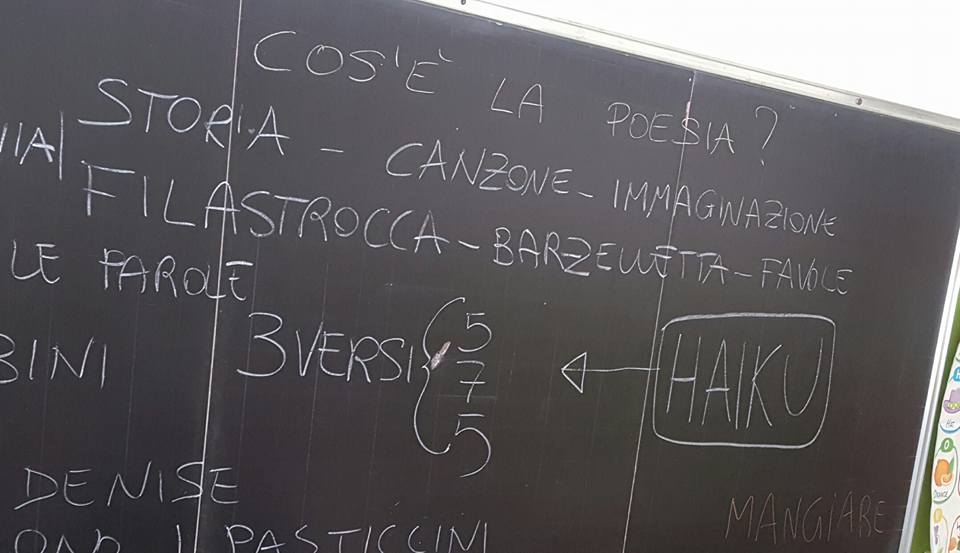 COS'È LA POESIA?
STORIA - CANZONE - IMMAGINAZIONE
FILASTROCCA - BARZELLETTA - FAVOLE
LE PAROLE
3 VERSI { 5 7 5 ← HAIKU
DENISE
MANGIARE
I PASTICCINI